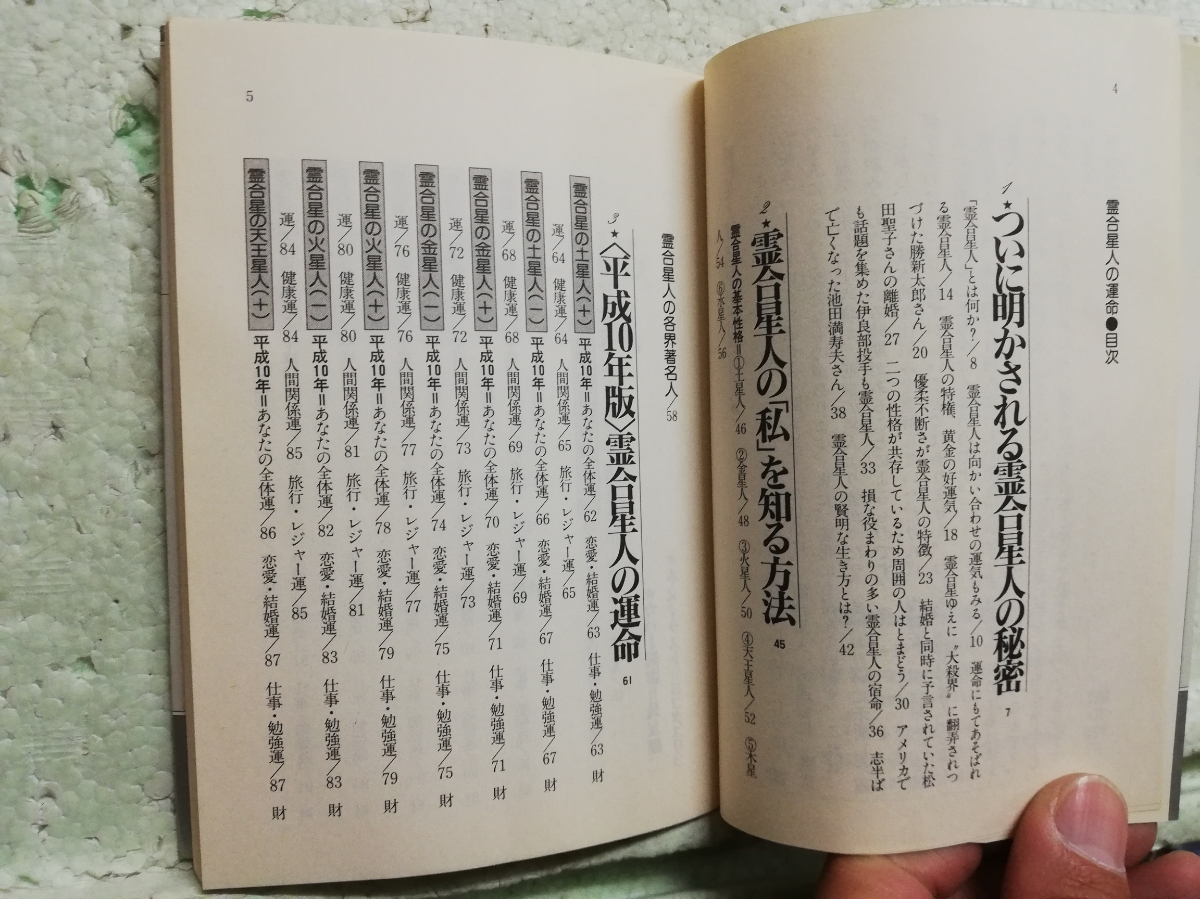 4
霊合星人の運命●目次
1★ついに明かされる霊合星人の秘密 7
「霊合星人」とは何か?/8 霊合星人は向かい合わせの運気もみる/10 運命にもてあそばれ
る霊合星人/14 霊合星人の特権、黄金の好運気/18 霊合星ゆえに〝大殺界〟に翻弄されつ
づけた勝新太郎さん/20 優柔不断さが霊合星人の特徴/23 結婚と同時に予言されていた松
田聖子さんの離婚/27 二つの性格が共存しているため周囲の人はとまどう/30 アメリカで
も話題を集めた伊良部投手も霊合星人/33 損な役まわりの多い霊合星人の宿命/36 志半ば
で亡くなった池田満寿夫さん/38 霊合星人の賢明な生き方とは?/42
2★霊合星人の「私」を知る方法 45
霊合星人の基本性格=①土星人/46 ②金星人/48 ③火星人/50 ④天王星人/52 ⑤木星
人/54 ⑥水星人/56
5
霊合星人の各界著名人/58
3★〈平成10年版〉霊合星人の運命 61
霊合星の土星人(+) 平成10年=あなたの全体運/62 恋愛・結婚運/63 仕事・勉強運/63 財
運/64 健康運/64 人間関係運/65 旅行・レジャー運/65
霊合星の土星人(-) 平成10年=あなたの全体運/66 恋愛・結婚運/67 仕事・勉強運/67 財
運/68 健康運/68 人間関係運/69 旅行・レジャー運/69
霊合星の金星人(+) 平成10年=あなたの全体運/70 恋愛・結婚運/71 仕事・勉強運/71 財
運/72 健康運/72 人間関係運/73 旅行・レジャー運/73
霊合星の金星人(-) 平成10年=あなたの全体運/74 恋愛・結婚運/75 仕事・勉強運/75 財
運/76 健康運/76 人間関係運/77 旅行・レジャー運/77
霊合星の火星人(+) 平成10年=あなたの全体運/78 恋愛・結婚運/79 仕事・勉強運/79 財
運/80 健康運/80 人間関係運/81 旅行・レジャー運/81
霊合星の火星人(-) 平成10年=あなたの全体運/82 恋愛・結婚運/83 仕事・勉強運/83 財
運/84 健康運/84 人間関係運/85 旅行・レジャー運/85
霊合星の天王星人(+) 平成10年=あなたの全体運/86 恋愛・結婚運/87 仕事・勉強運/87 財